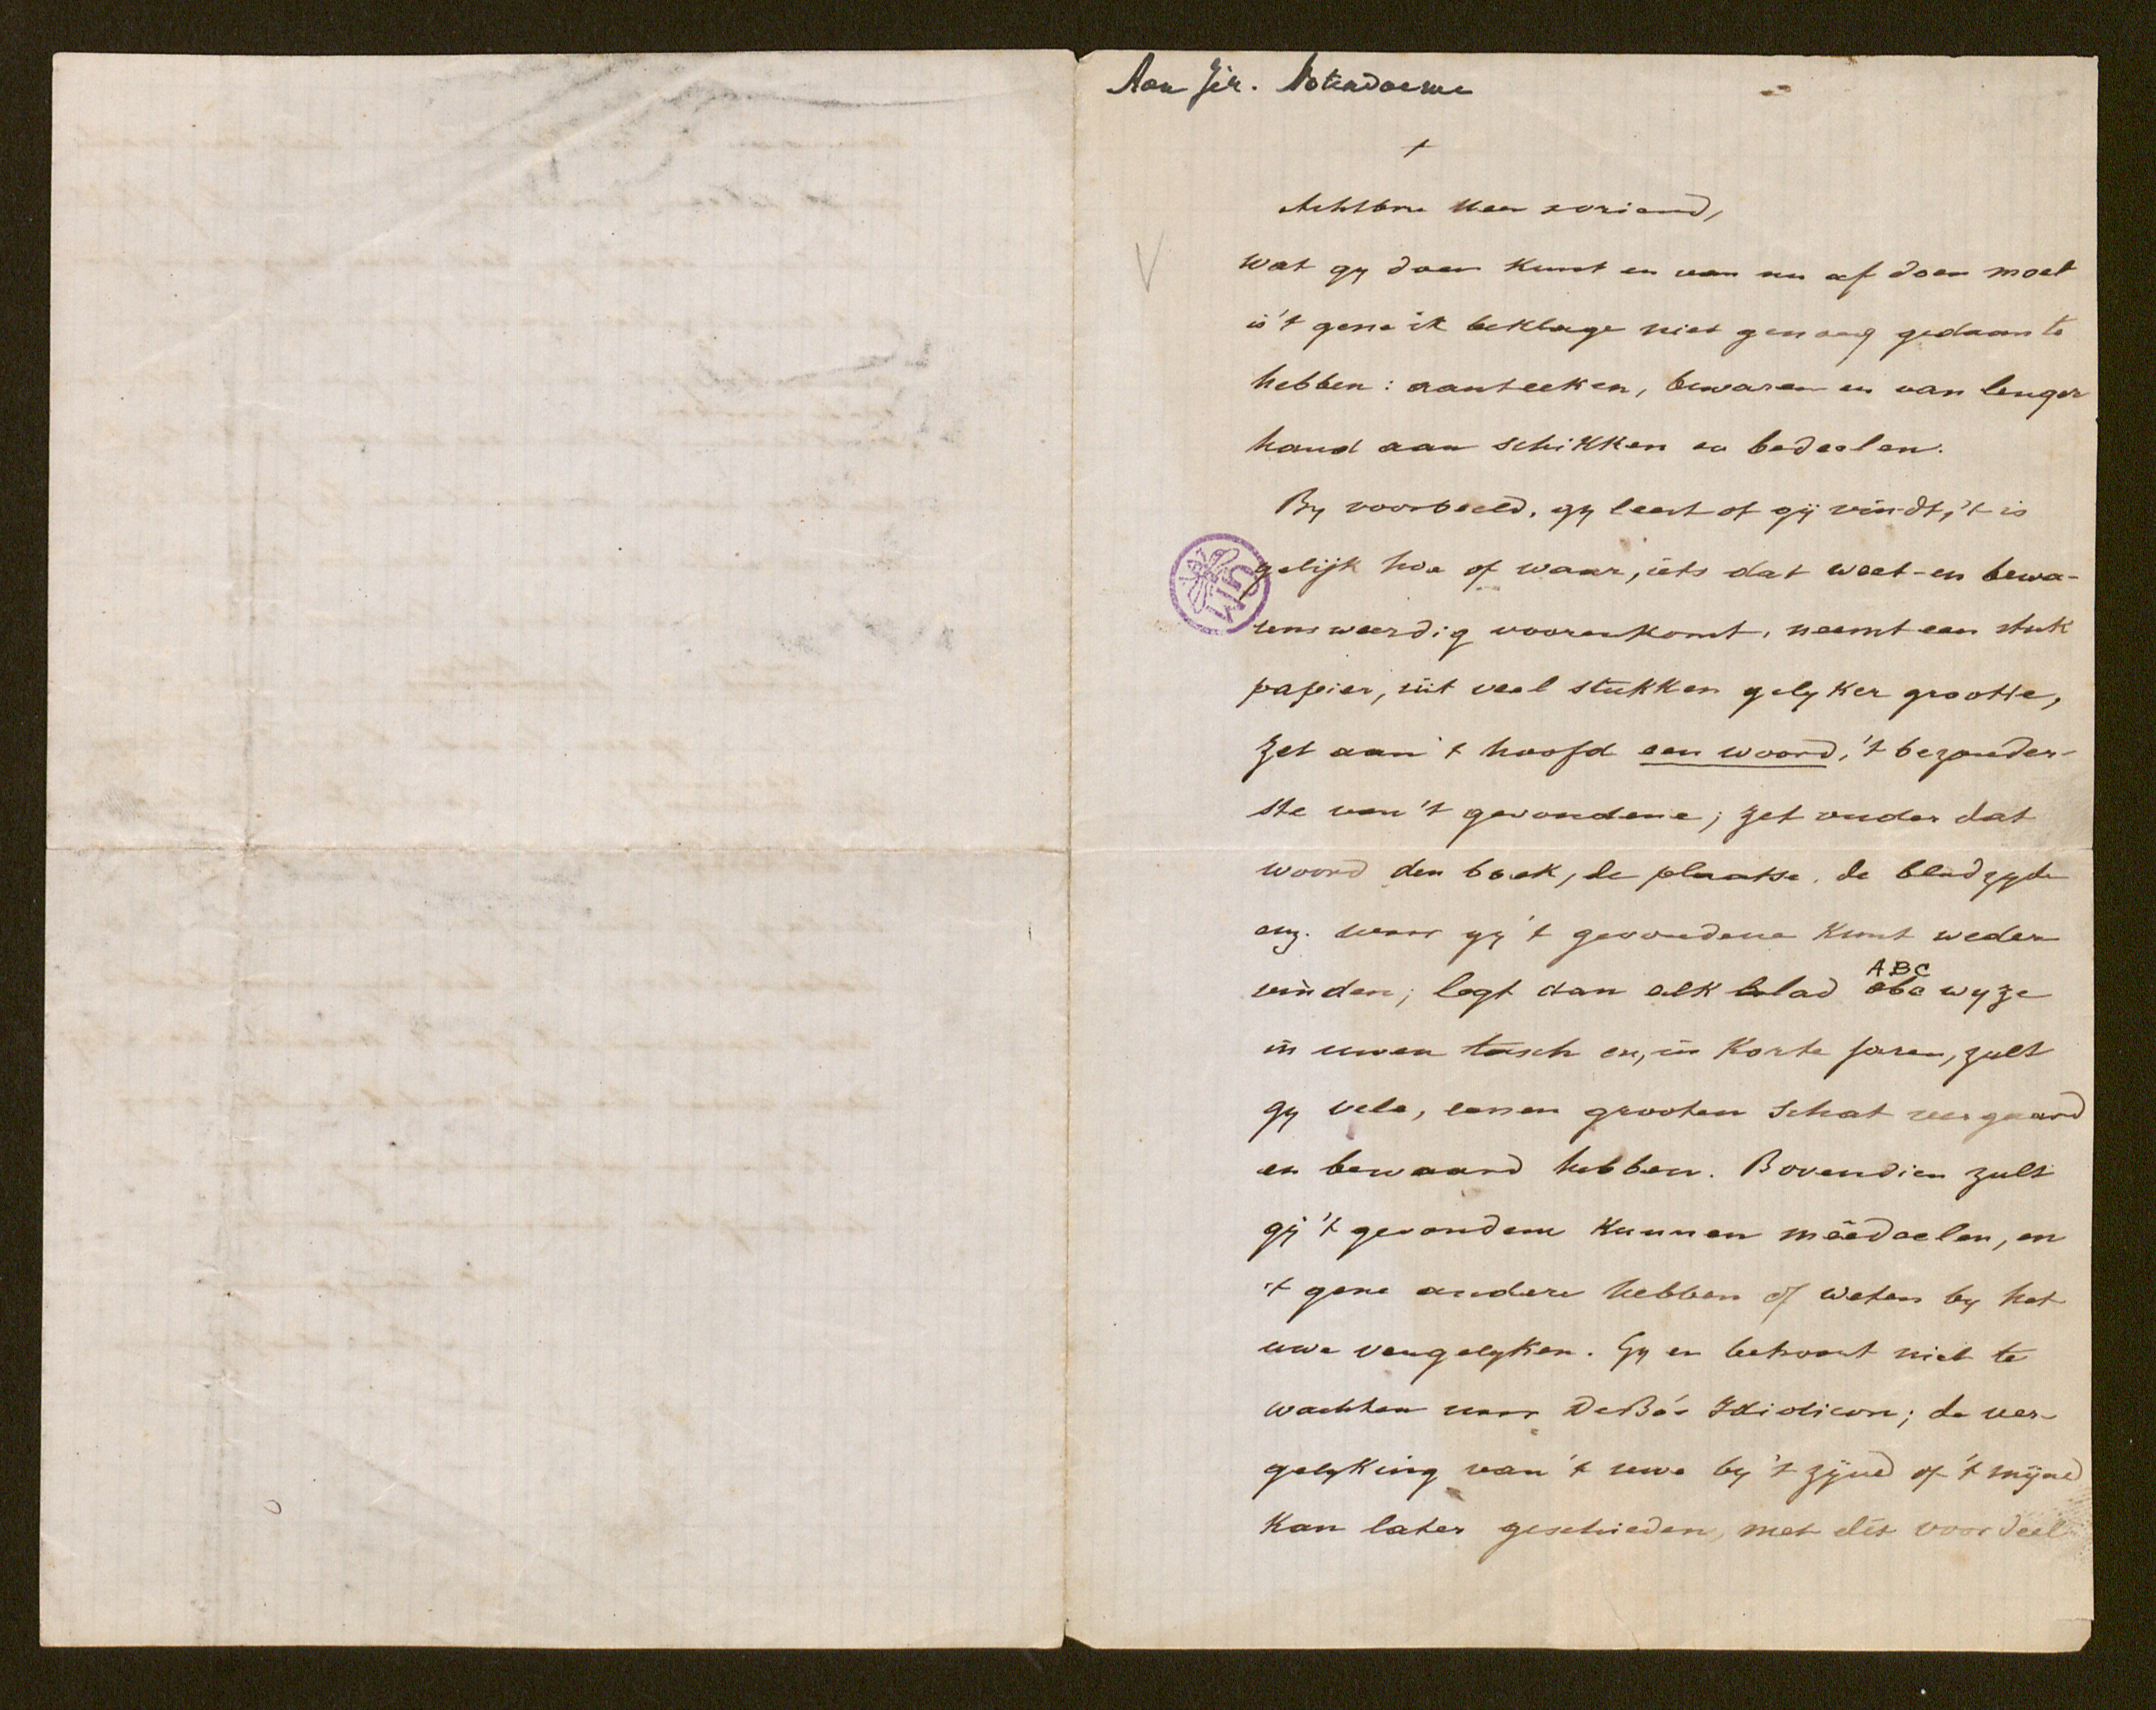 Aan Jer. Noterdaeme
+
Achtbre Heer & vriend,
Wat gy doen kunt en van nu af doen moet
is 't gene ik beklage niet genoeg gedaan te
hebben: aanteeken, bewaren en van langer
hand aan schikken en bedeelen.
By voorbeeld, gy leest of gij vindt, 't is
gelijk hoe of waar, iets dat weet- en bewa-
rensweerdig voorenkomt, neemt een stuk
papier, uit veel stukken gelyker grootte,
zet aan 't hoofd een woord, 't bezonder-
ste van 't gevondene; zet onder dat
woord den boek, de plaatse, de bladzyde
enz. waar gy 't gevondene kunt weder
vinden; legt dan elk blad abc wyze
ABC
in uwen tasch en, in korte jaren, zult
gy vele, eenen grooten schat vergaard
en bewaard hebben. Bovendien zult
gij 't gevondene kunnen mêêdeelen, en
't gene andere hebben of weten by het
uwe vergelyken. Gy en behoort niet te
wachten naar DeBo's Idioticon; de ver-
gelyking van 't uwe by 't zijne of 't mijne
kan later geschieden, met dit voordeel